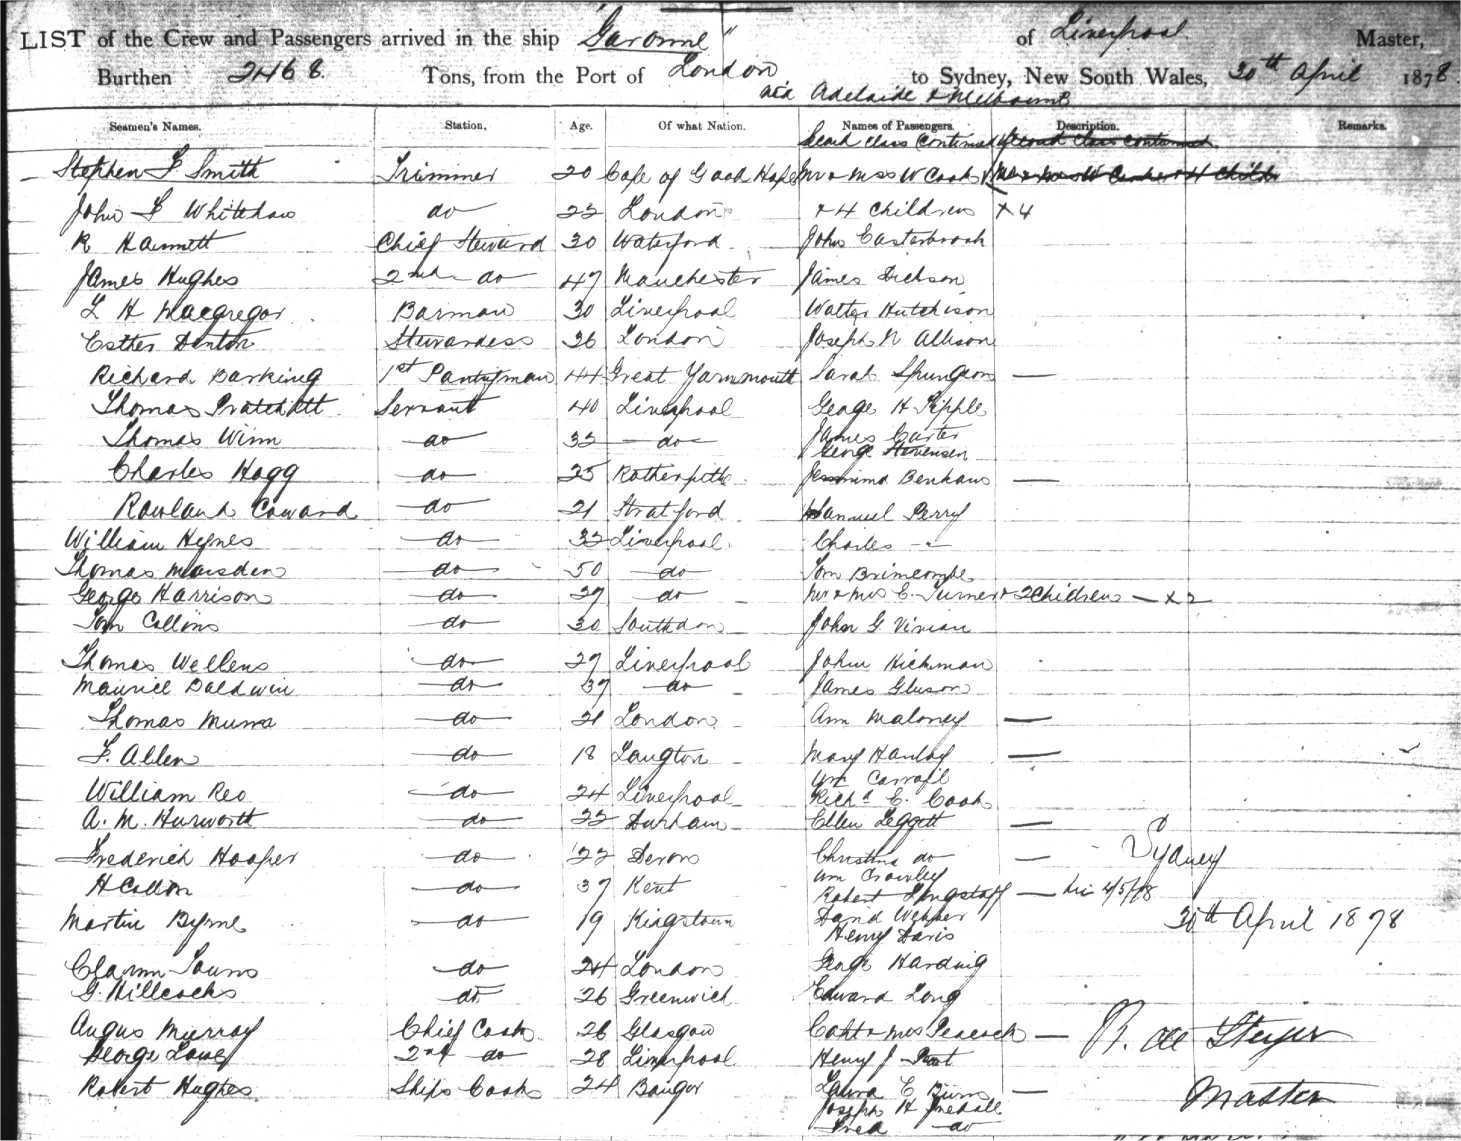 LIST of the Crew and Passengers arrived in the ship "Garonne" of Liverpool Master,
Burthen 2468. Tons, from the Port of London to Sydney, New South Wales, 30th April 1878.
via Adelaide & Melbourne
Seamen's Names. Station. Age. Of what Nation. Names of Passengers. Description. Remarks.
Second Class Continued Second Class Continued
Stephen F Smith Trimmer 20 Cape of Good Hope Mr & Mrs W Cook
John F Whitehaw do 22 London & 4 Children x 4
R Hannett Chief Steward 30 Waterford John Easterbrook
James Hughes 2nd do 47 Manchester James Dickson
L H Macgregor Barman 30 Liverpool Walter Hutchison
Esther Denton Stewardess 36 London Joseph N Allison
Richard Barking 1st Pantryman 44 Great Yarmmouth Sarah Spurgeon —
Thomas Pratchitt Servant 40 Liverpool George H Pipple
Thomas Winn do 32 do James Carter
George Stevenson
Charles Hogg do 25 Rotherhithe Jemima Benham —
Rowland Coward do 21 Stratford Samuel Perry
William Hynes do 32 Liverpool Charles
Thomas Marsden do 50 do Tom Brimcombe
George Harrison do 27 do Mr & Mrs E. Turner & 2 Children — x 2
Tom Collins do 30 John G Vivian
Thomas Wellens do 27 Liverpool John Hickman
Maurice Baldwin do 37 do James Gleeson
Thomas Munna do 21 London Ann Maloney —
F. Allen do 18 Langton Mary Hanley —
Wm
William Reo do 24 Liverpool Richd C. Cook
A. M. Hurworth do 22 Durham Ellen Leggett —
Frederick Hooper do 22 Devon Christina do — Sydney
Wm Crowley
H Collon do 37 Kent Robert Longstaff — 4/5/78
Martin Byrne do 19 Kingstown David Webber 30th April 1878
Henry Davis
do 24 London George Harding
G. Hillcocks do 26 Greenwich Edward Long
Angus Murray Chief Cook 26 Glasgow Capt & Mrs Peacock —
George Lowey 2nd do 28 Liverpool Henry J
Robert Hughes Ships Cook 24 Bangor Laura E Burns — Master
Joseph H Tredall
Fred do